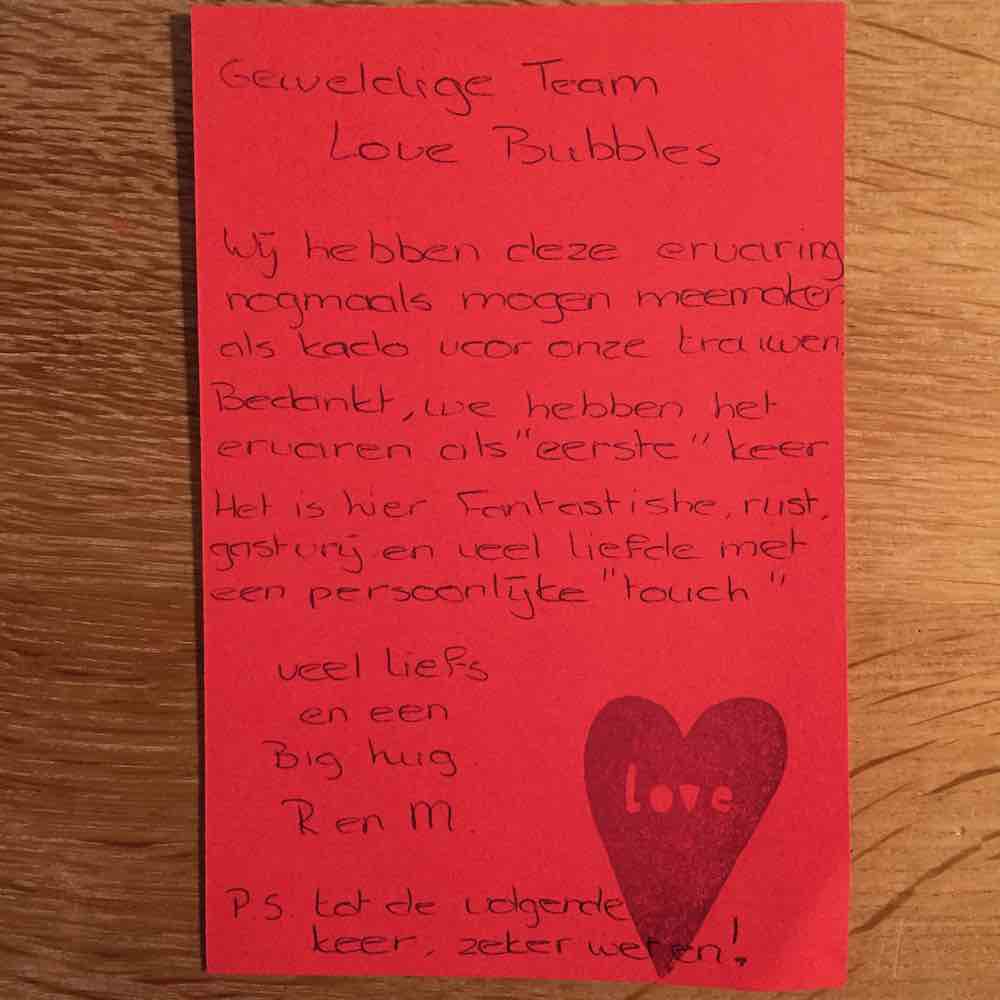 Geweldige Team
Love Bubbles
Wij hebben deze ervaring
nogmaals mogen meemaken
als kado voor onze trouwen.
Bedankt, we hebben het
ervaren als "eerste" keer
Het is hier Fantastishe, rust,
gastvrij en veel liefde met
een persoonlijke "touch"
veel liefs
en een
Big hug.
R en M.
love
P.S. tot de volgende
keer, zeker weten!